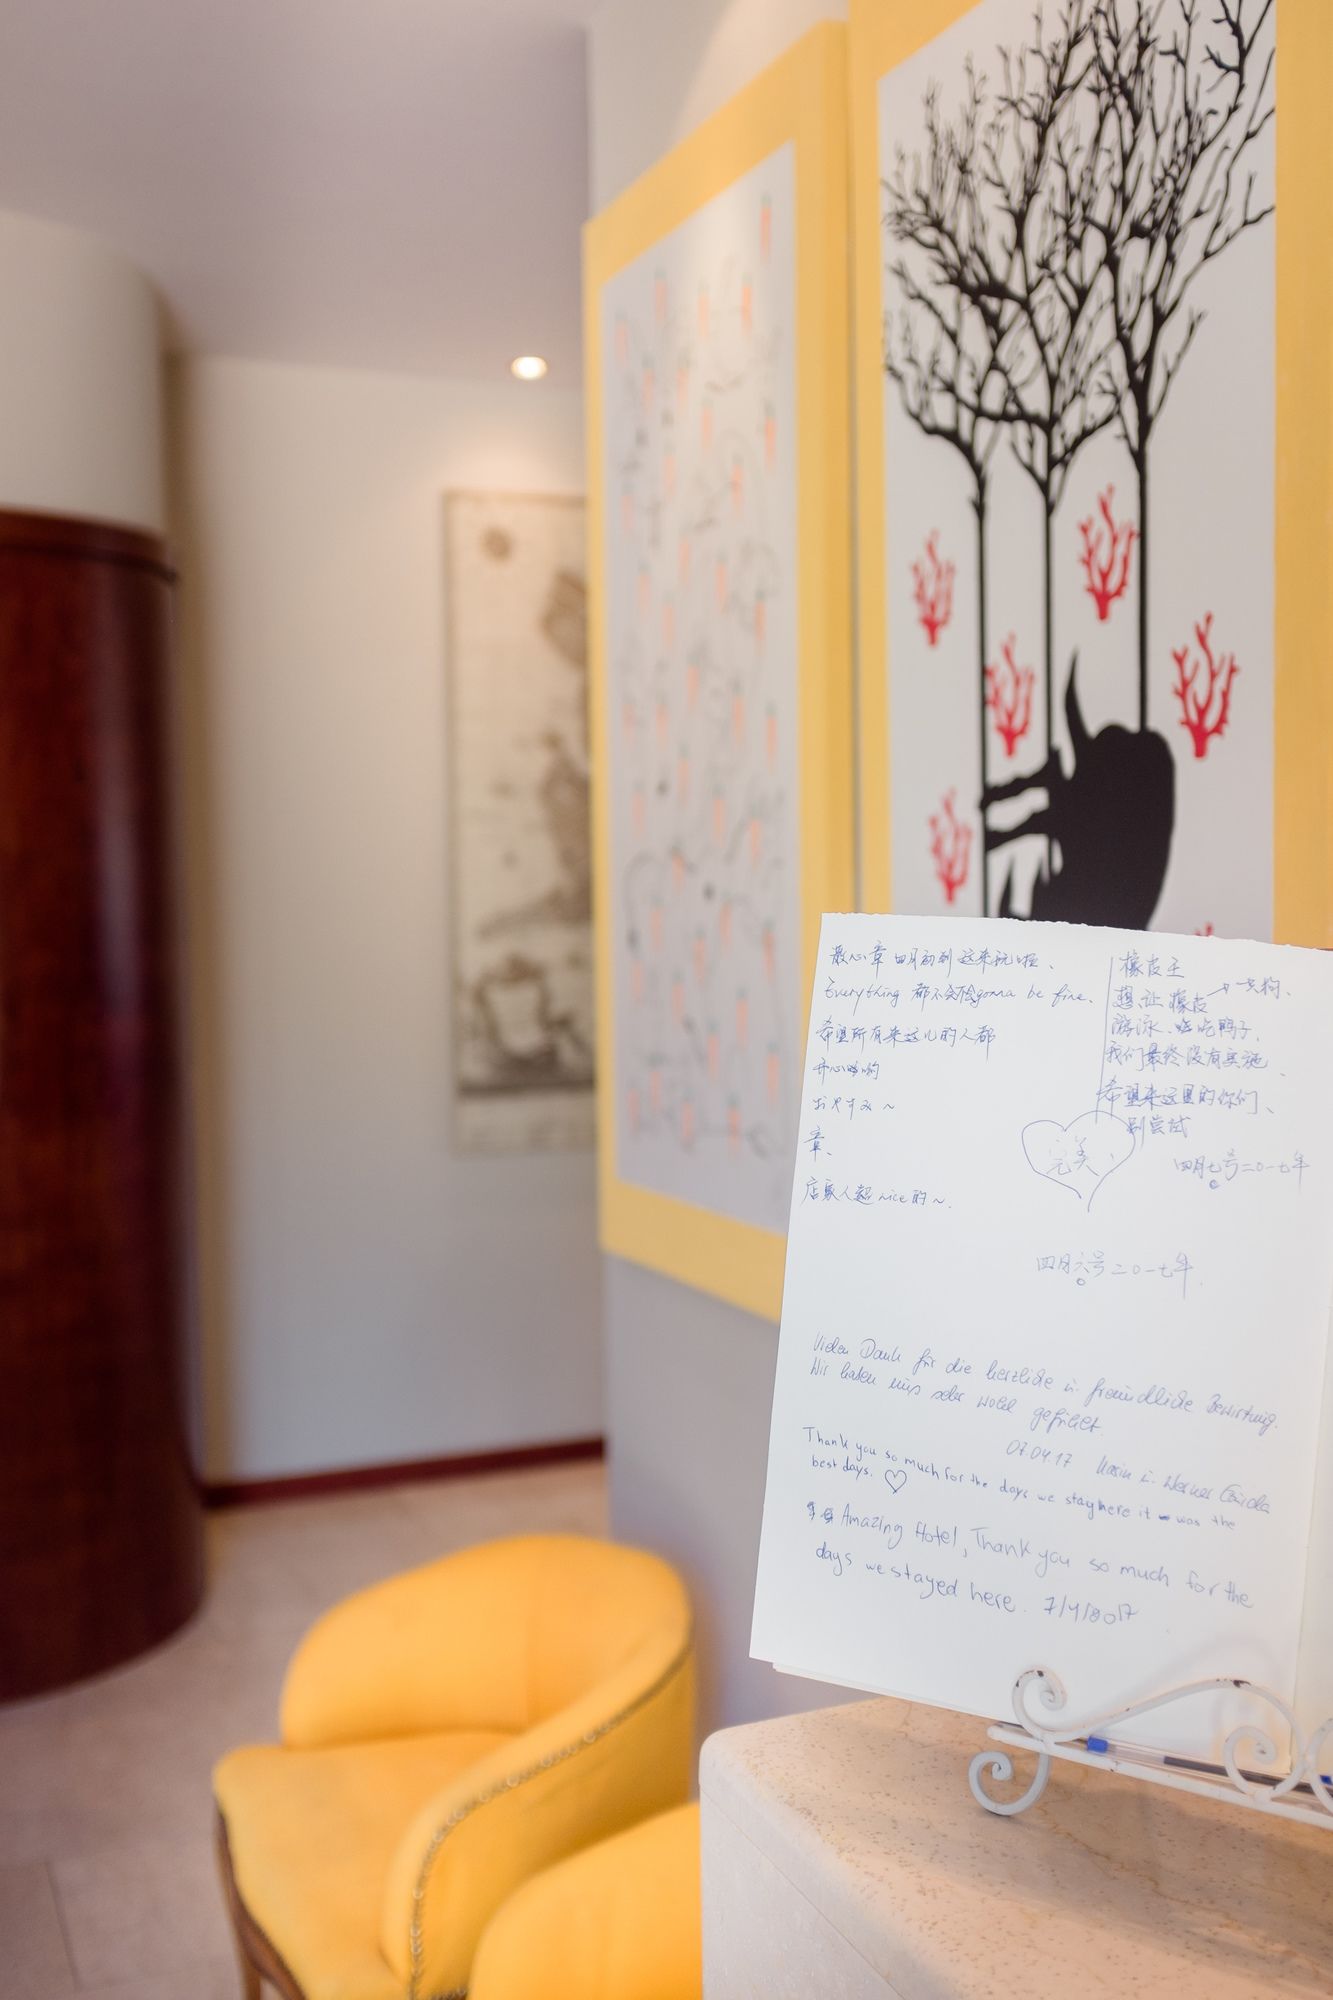 散心章 四月初到这来玩啦、
Everything 都不会gonna be fine.
希望所有来这儿的人都
开心哟
おやすみ~
章、
店家人超nice的~.
完美、
四月六号二〇一七年.
橡皮王
想让橡皮→一只狗、
游泳、吃鸭子、
我们最终没有实施、
希望来这里的你们、
别尝试
四月七号二〇一七年
Vielen Dank für die herzliche u. freundliche Bewirtung.
Wir haben uns sehr wohl gefühlt.
07.04.17 Karin u. Werner
Thank you so much for the days we stay here it was the
best days. ♡
Amazing Hotel, Thank you so much for the
days we stayed here. 7/4/2017